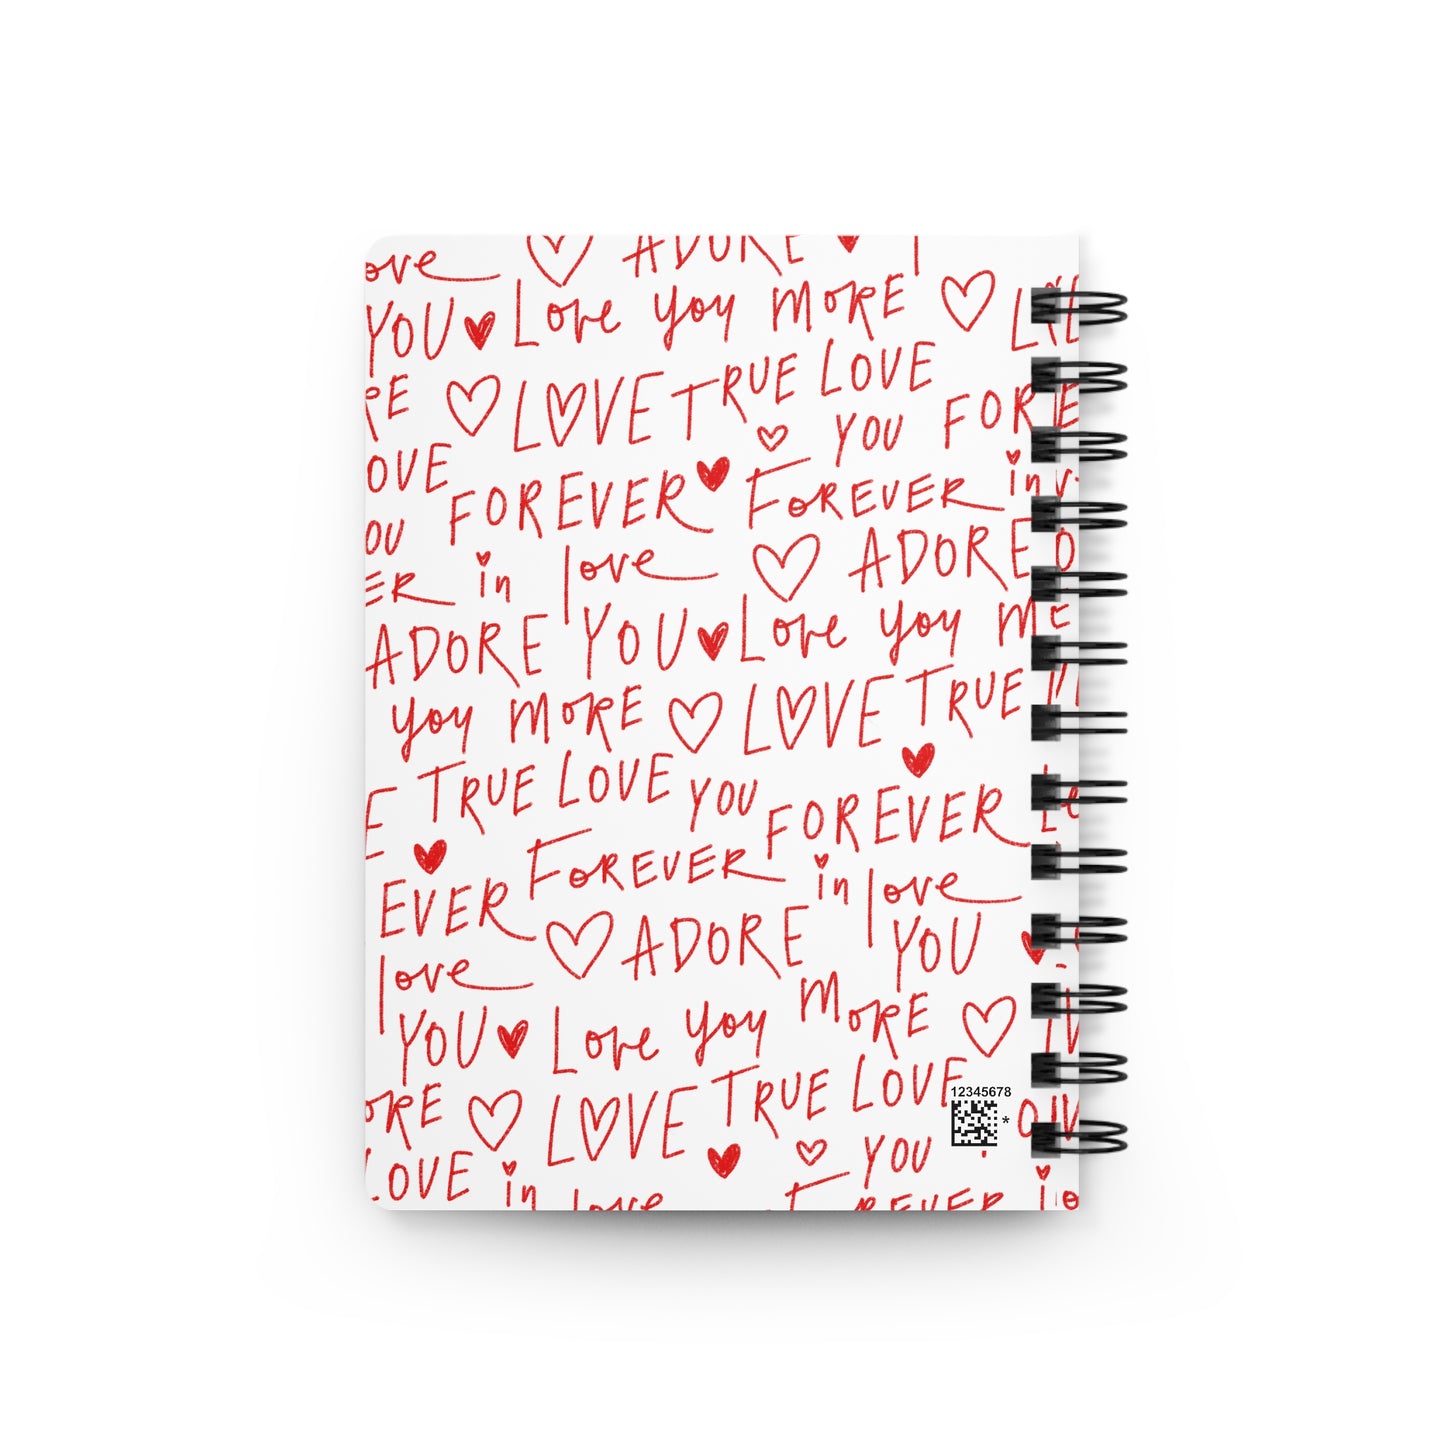 ove ADORE
YOU Love you MORE
RE LOVE TRUE LOVE
YOU FORE
OVE FOREVER FOREVER in
OU in love ADORE
ER
ADORE YOU Love you
you MORE LOVE TRUE
TRUE LOVE YOU FOREVER
EVER FOREVER in love
love ADORE YOU
YOU Love you MORE
ORE LOVE TRUE LOVE
12345678
*
YOU
LOVE in love FOREVER